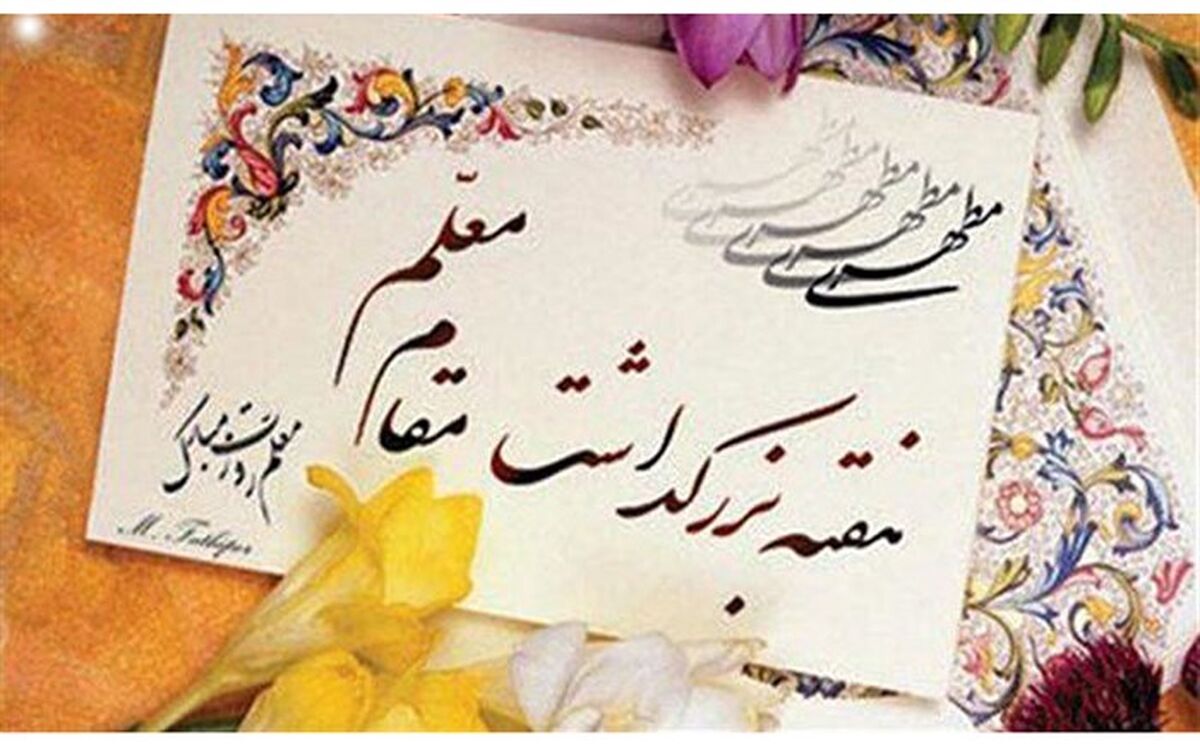 مطهری
مطهری
مطهری
مطهری
مطهری
هفته بزرگداشت مقام معلّم
معلم روزت مبارک
M. Fathipor